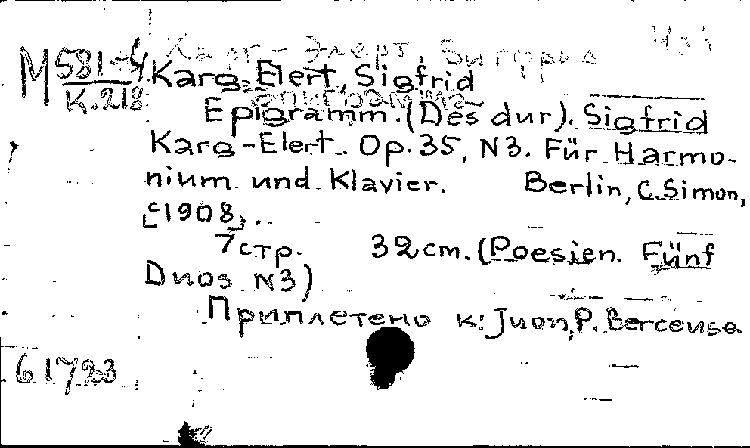 Карг-Элерт, Зигфрид
М 581-4
К.218
Karg-Elert, Sigfrid
Epigramm. (Des dur). Sigfrid
Karg-Elert. Op. 35, N3. Für Harmo-
nium und Klavier. Berlin, C. Simon,
[c1908].
7 стр. 32 cm. (Poesien. Fünf
Duos N3)
Приплетено к: Juon, P. Berceuse.
61723